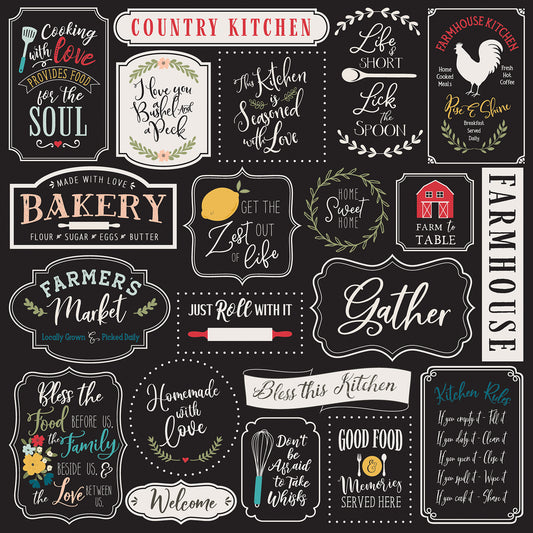 Cooking
with love
PROVIDES FOOD
for the
SOUL
COUNTRY KITCHEN
I love you
a
Bushel And
a Peck
This Kitchen
is
Seasoned
with Love
Life
is
SHORT
Lick
THE
SPOON
FARMHOUSE KITCHEN
Home
Cooked
Meals
Fresh
Hot
Coffee
Rise & Shine
Breakfast
Served
Daily
MADE WITH LOVE
BAKERY
FLOUR SUGAR EGGS BUTTER
GET THE
Zest OUT
OF life
HOME
Sweet
HOME
FARM to
TABLE
FARMHOUSE
FARMERS
Market
Locally Grown & Picked Daily
JUST Roll WITH IT
Gather
Bless the
Food BEFORE US,
the Family
BESIDE US, &
the Love BETWEEN
US.
Homemade
with
Love
Bless this Kitchen
Welcome
Don't
Be
Afraid
to Take
Whisks
GOOD FOOD
&
Memories
SERVED HERE
Kitchen Rules
If you empty it - Fill it
If you dirty it - Clean it
If you open it - Close it
If you spill it - Wipe it
If you cook it - Share it